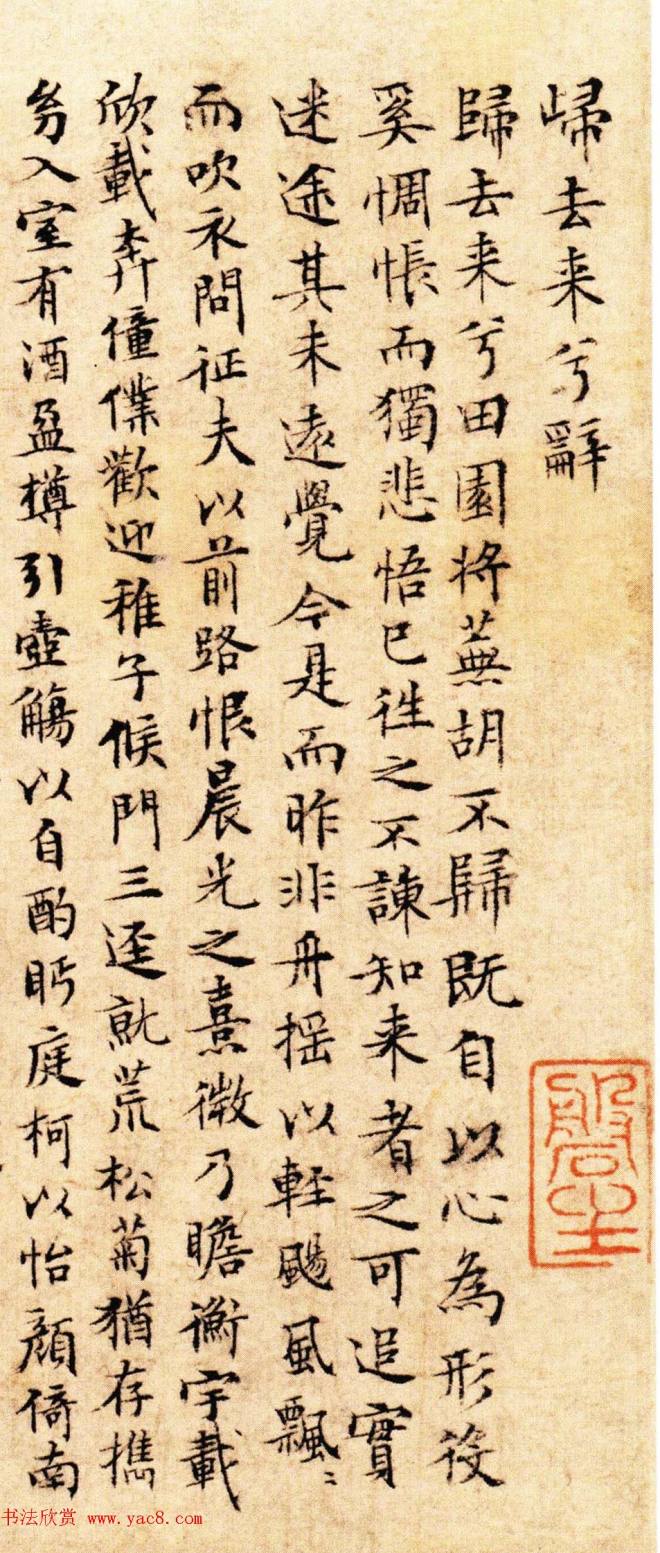 歸去来兮辭
歸去来兮田園将蕪胡不歸既自以心為形役
奚惆悵而獨悲悟已往之不諫知来者之可追實
迷途其未遠覺今是而昨非舟摇以輕颺風飄〻
而吹衣問征夫以前路恨晨光之熹微乃瞻衡宇載
欣載奔僮僕歡迎稚子候門三逕就荒松菊猶存攜
幼入室有酒盈樽引壺觴以自酌眄庭柯以怡顔倚南
书法欣赏 www.yac8.com